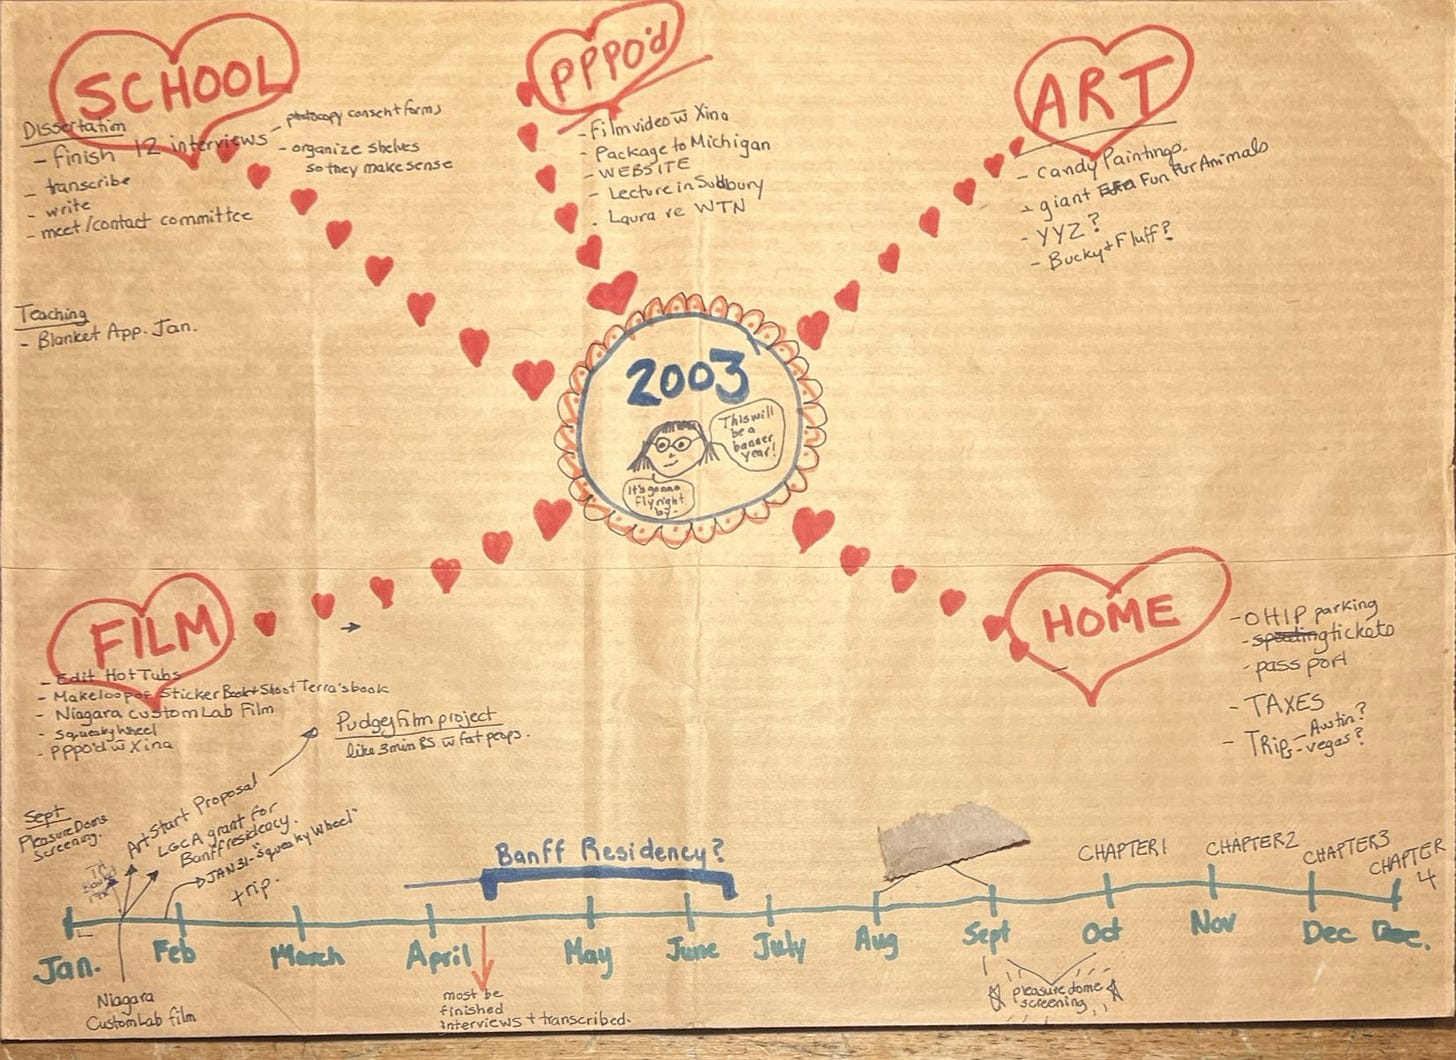 SCHOOL
Dissertation
- finish 12 interviews
- photocopy consent forms
- organize shelves
so they make sense
- transcribe
- write
- meet/contact committee
Teaching
- Blanket App. Jan.
PPPO'd
- Film video w̄ Xina
- Package to Michigan
- WEBSITE
- Lecture in Sudbury
- Laura re WTN
ART
- Candy Paintings.
- giant Fun Fur Animals
- YYZ?
- Bucky + Fluff?
2003
This will
be a
banner
year!
It's gonna
fly right
by-
FILM
- Edit Hot Tubs
- Make loop of Sticker Book + Shoot Terra's book
- Niagara Custom Lab Film
- Squeaky Wheel
- PPPO'd w̄ Xina
Pudgey film project
like 3min BS w fat peops.
HOME
- OHIP parking
- tickets
- passport
- TAXES
- Trip - Austin?
- vegas?
Sept
Pleasure Dome
Screening.
Art Start Proposal
LGCA grant for
Banff residency.
JAN 31 - "Squeaky Wheel"
+ trip.
Banff Residency?
CHAPTER 1
CHAPTER 2
CHAPTER 3
CHAPTER
4
Jan.
Feb
March
April
May
June
July
Aug
Sept
Oct
Nov
Dec
Niagara
Custom Lab film
most be
finished
interviews + transcribed.
pleasure dome
screening